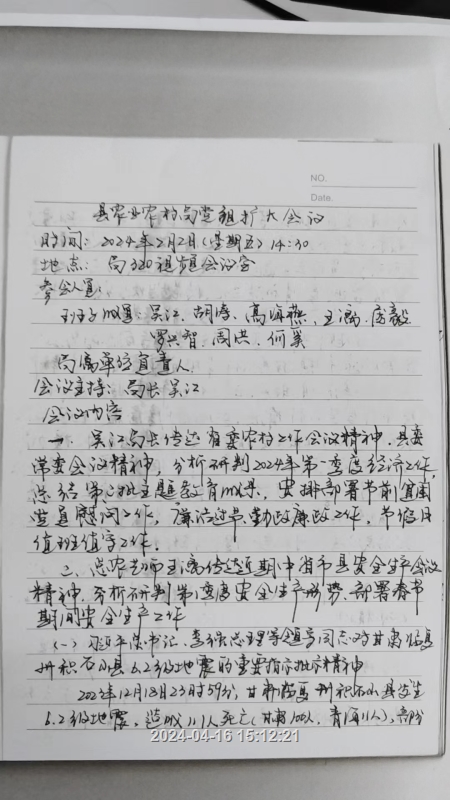 NO.
Date.
县农业农村局党组扩大会议
时间：2024年2月2日（星期五）14:30
地点：局320视频会议室
参会人员：
班子成员：吴江、胡涛、高海燕、王
罗兴智、周洪、何奚
局属单位负责人
会议主持：局长吴江
会议内容
一、吴江局长传达省委农村工作会议精神、县委
常委会议精神，分析研判2024年第一季度经济工作，
总结第二批主题教育成果，安排部署节前困
党员慰问工作，廉洁过节、勤政廉政工作，节假日
值班值守工作。
二、总农艺师王传达近期中省市县安全生产会议
精神，分析研判第一季度安全生产形势，部署春节
期间安全生产工作
（一）习近平总书记、李强总理等领导同志对甘肃临夏
州积石山县6.2级地震的重要指示批示精神
2023年12月18日23时59分，甘肃临夏州积石山县发生
6.2级地震，造成111人死亡（甘肃100人，青海11人），部分
2024-04-16 15:12:21